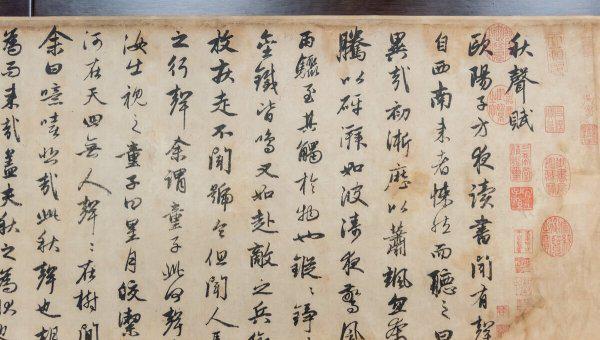 秋聲賦
歐陽子方夜讀書聞有聲
自西南来者悚然而聽之曰
異哉初淅瀝以蕭颯忽奔
騰以砰湃如波濤夜驚風
雨驟至其觸於物也鏦〻錚〻
金鐵皆鳴又如赴敵之兵銜
枚疾走不聞號令但聞人馬
之行聲余謂童子此何聲
汝出視之童子曰星月皎潔
河在天四無人聲〻在樹間
余曰噫嘻悲哉此秋聲也胡
為而来哉蓋夫秋之為狀也